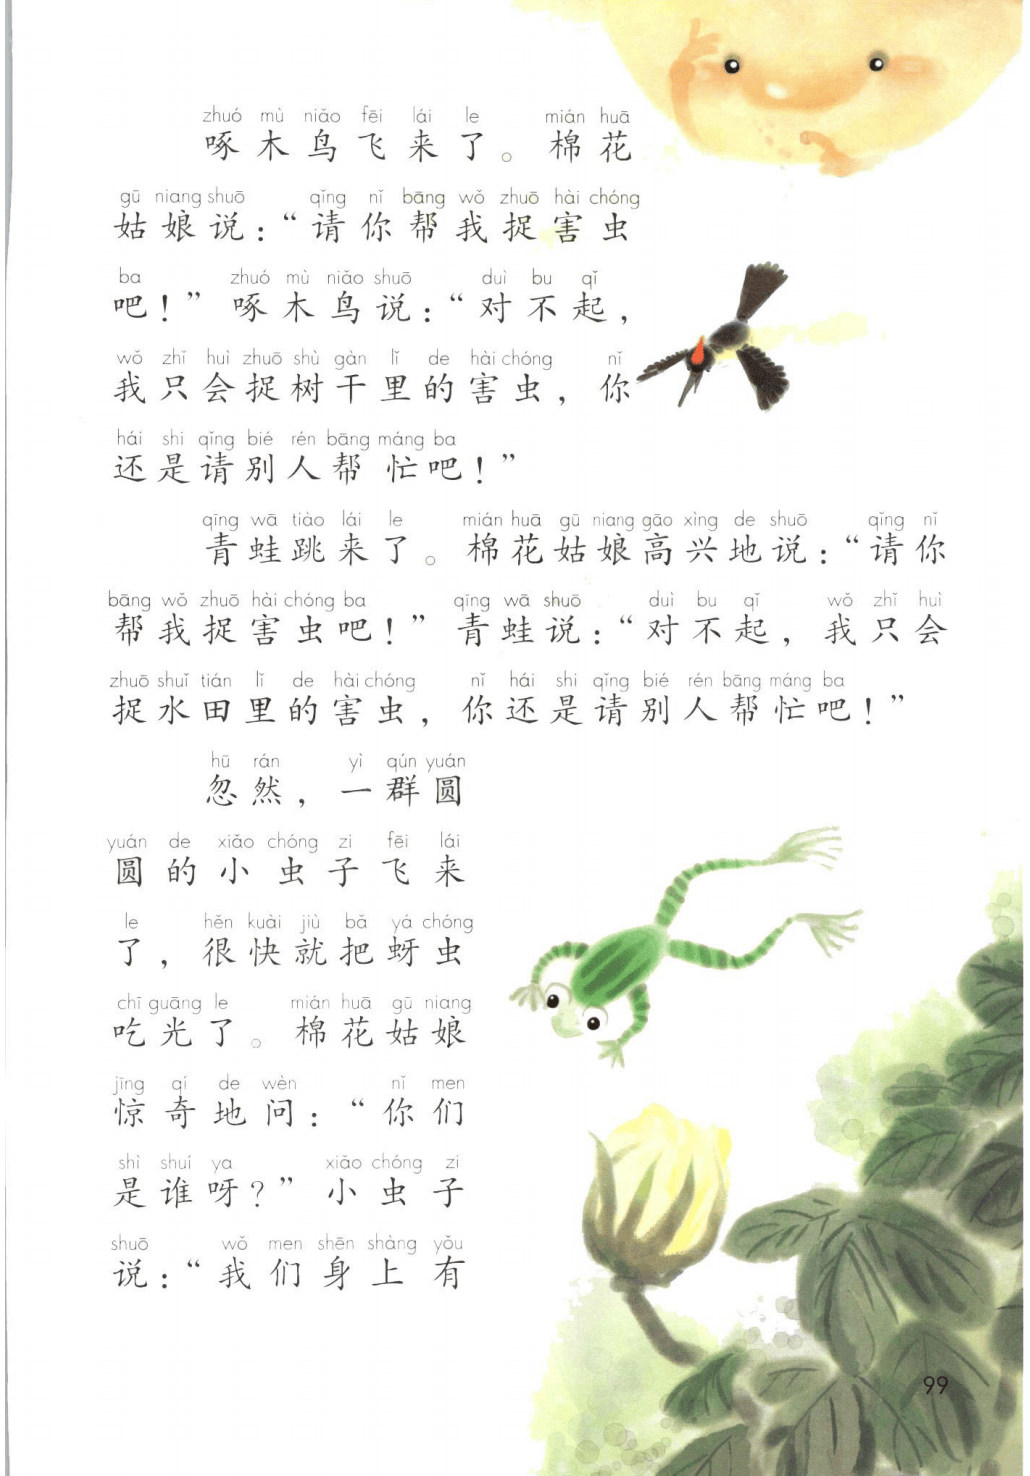 zhuó mù niǎo fēi lái le mián huā
啄木鸟飞来了。棉花
gū niang shuō qǐng nǐ bāng wǒ zhuō hài chóng
姑娘说：“请你帮我捉害虫
ba zhuó mù niǎo shuō duì bu qǐ
吧！”啄木鸟说：“对不起，
wǒ zhǐ huì zhuō shù gàn lǐ de hài chóng nǐ
我只会捉树干里的害虫，你
hái shi qǐng bié rén bāng máng ba
还是请别人帮忙吧！”
qīng wā tiào lái le mián huā gū niang gāo xìng de shuō qǐng nǐ
青蛙跳来了。棉花姑娘高兴地说：“请你
bāng wǒ zhuō hài chóng ba qīng wā shuō duì bu qǐ wǒ zhǐ huì
帮我捉害虫吧！”青蛙说：“对不起，我只会
zhuō shuǐ tián lǐ de hài chóng nǐ hái shi qǐng bié rén bāng máng ba
捉水田里的害虫，你还是请别人帮忙吧！”
hū rán yì qún yuán
忽然，一群圆
yuán de xiǎo chóng zi fēi lái
圆的小虫子飞来
le hěn kuài jiù bǎ yá chóng
了，很快就把蚜虫
chī guāng le mián huā gū niang
吃光了。棉花姑娘
jīng qí de wèn nǐ men
惊奇地问：“你们
shì shuí ya xiǎo chóng zi
是谁呀？”小虫子
shuō wǒ men shēn shàng yǒu
说：“我们身上有
99